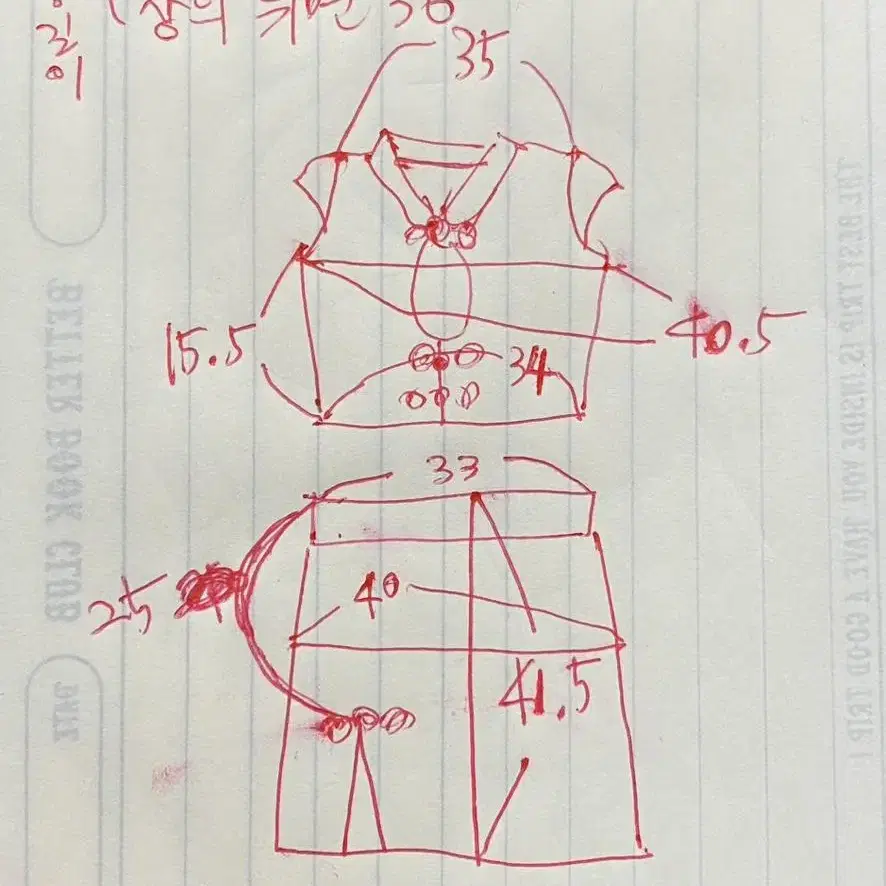 길이
(상의 뒤면 38
35
15.5
40.5
34
33
25
40
41.5
BETTER BOOK CLUB
DATE
THE BEST TRIP IS INSIDE YOU HAVE A GOOD TRIP!